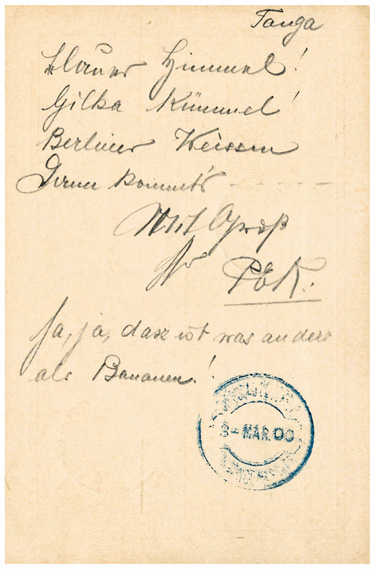 Tanga
Blauer Himmel!
Gilka Kümmel!
Berliner Weissen
Dann kommt's
Mit Gruß
Ihr P&K.
Ja, ja, das ist was anders
als Bananen!
8 - MAR. 00